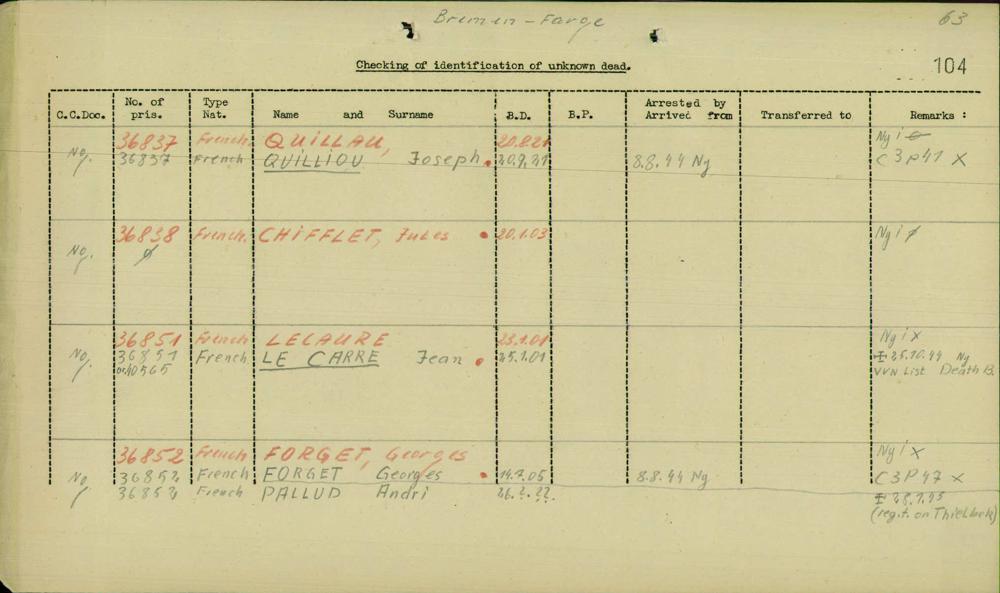 Bremen - Farge 63
104
Checking of identification of unknown dead.
C.C.Doc. No. of pris. Type Nat. Name and Surname B.D. B.P. Arrested by Arrived from Transferred to Remarks :
36837 French. QUiLLAU, 20.8.21 Ng i
No. 36837 French QUILLIOU Joseph. 20.9.21 8.8.44 Ng C 3 P 41 X
No. 36838 French. CHiFFLET, Jules 20.1.03 Ng i
36851 French LECAURE 23.1.01 Ng i x
No. 36851 French LE CARRE Jean 25.1.01 25.10.44 Ng
or 40565 VVN List Death B.
36852 French FORGET, Georges Ng i x
No 36852 French FORGET Georges 14.7.05 8.8.44 Ng C 3 P 47 X
36852 French PALLUD Andri 26.2.22. 28.7.45
(reg.t. on